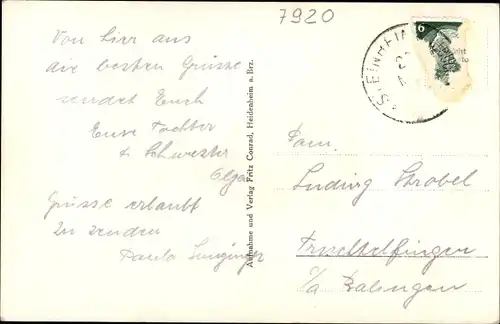 7920
Von hier aus
die besten Grüsse
sendet Euch
Eure Tochter
& Schwester
Olga
Grüsse erlaubt
zu senden
Paula
Aufnahme und Verlag Fritz Conrad, Heidenheim a. Brz.
STEINHEIM
6
Fam.
Ludwig Strobel
Truchtelfingen
b/a Balingen